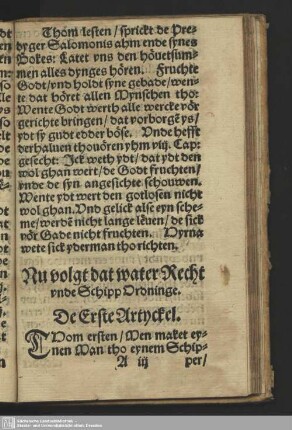 Thom lesten / sprickt de Pre-
dyger Salomonis ahm ende synes
Bokes: Latet vns den höuetsum-
men alles dynges hören. Fruchte
Godt / vnd holdt syne gebade / wen-
te dat höret allen Mynschen tho:
Wente Godt werth alle wercke vör
gerichte bringen / dat vorborgē ys /
ydt sy gudt edder böse. Vnde hefft
derhaluen thouören yhm viij. Cap:
gesecht: Ick weth ydt / dat ydt den
wol ghan wert / de Godt fruchten /
vnde de syn angesichte schouwen.
Wente ydt wert den gotlosen nicht
wol ghan. Vnd gelick alse eyn sche-
me / werdē nicht lange leuen / de sick
vör Gade nicht fruchten. Hyrna
wete sick yderman tho richten.
Nu volgt dat water Recht
vnde Schipp Ordninge.
De Erste Artyckel.
THom ersten / Men maket ey-
nen Man tho eynem Schip-
A iij per /